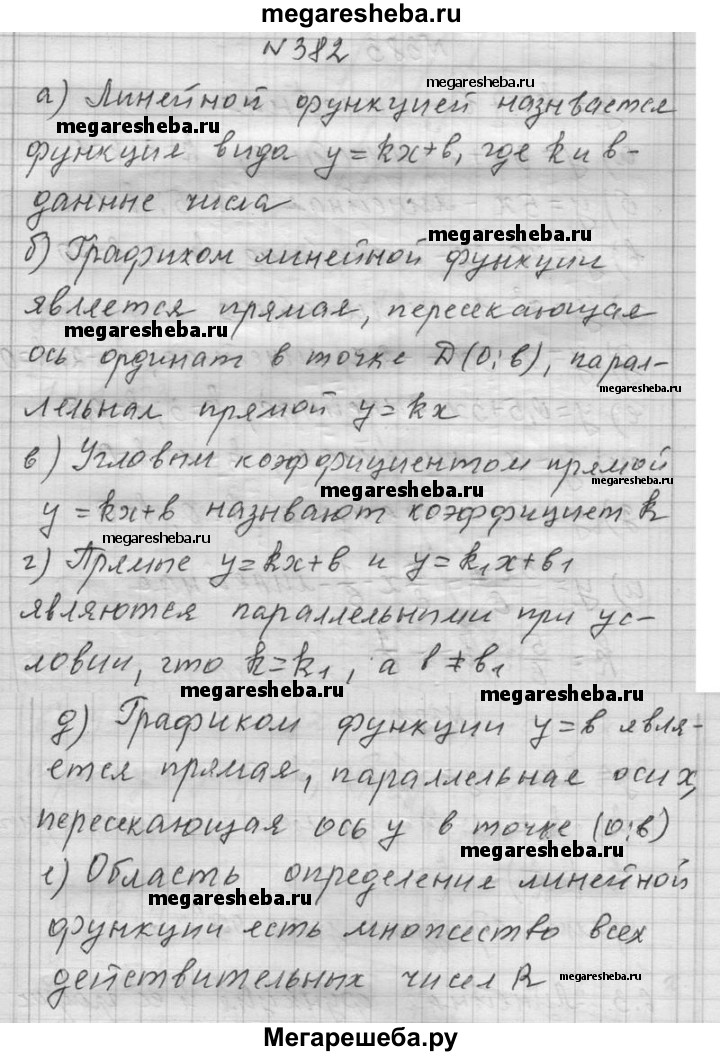 megaresheba.ru
N382
megaresheba.ru
а) Линейной функцией назывется
megaresheba.ru
функция вида y=kx+в, где k и в-
данные числа
megaresheba.ru
б) Графихом линейной функции
является прямая, пересекающая
megaresheba.ru
ось ординат в точке D(0;в), парал-
megaresheba.ru
лельная прямой y=kx
в) Угловым коэффициентом прямой
megaresheba.ru
megaresheba.ru
y=kx+в называют коэффициет k
megaresheba.ru
г) Прямые y=kx+в и y=k₁x+в₁
являются параллельными при ус-
ловии, что k=k₁, а в≠в₁
megaresheba.ru
megaresheba.ru
д) Графиком функции y=в явля-
ется прямая, параллельная оси x,
пересекающая ось y в точке (0;в)
megaresheba.ru
е) Область определения линейной
megaresheba.ru
функции есть множество всех
действительных чисел R
megaresheba.ru
Мегарешеба.ру